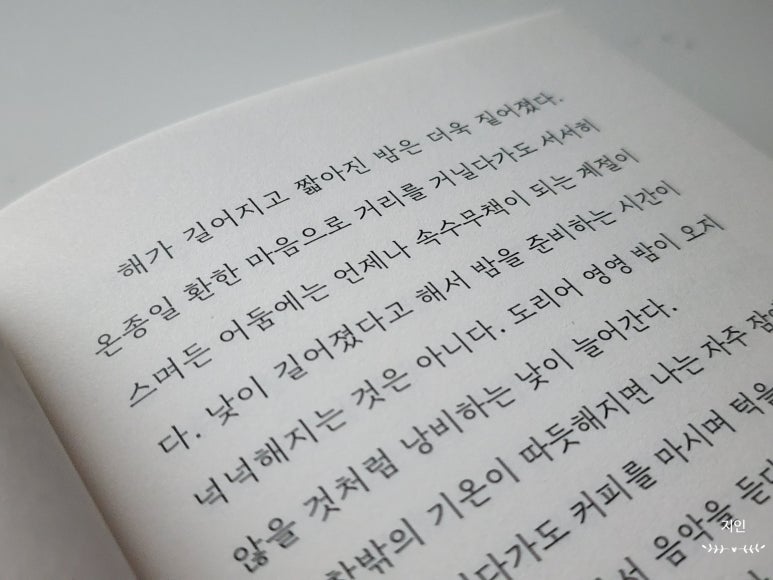 해가 길어지고 짧아진 밤은 더욱 짙어졌다.
온종일 환한 마음으로 거리를 거닐다가도 서서히
스며든 어둠에는 언제나 속수무책이 되는 계절이
다. 낮이 길어졌다고 해서 밤을 준비하는 시간이
넉넉해지는 것은 아니다. 도리어 영영 밤이 오지
않을 것처럼 낭비하는 낮이 늘어간다.
창밖의 기온이 따듯해지면 나는 자주
커피를 마시며 턱을
음악을
지인